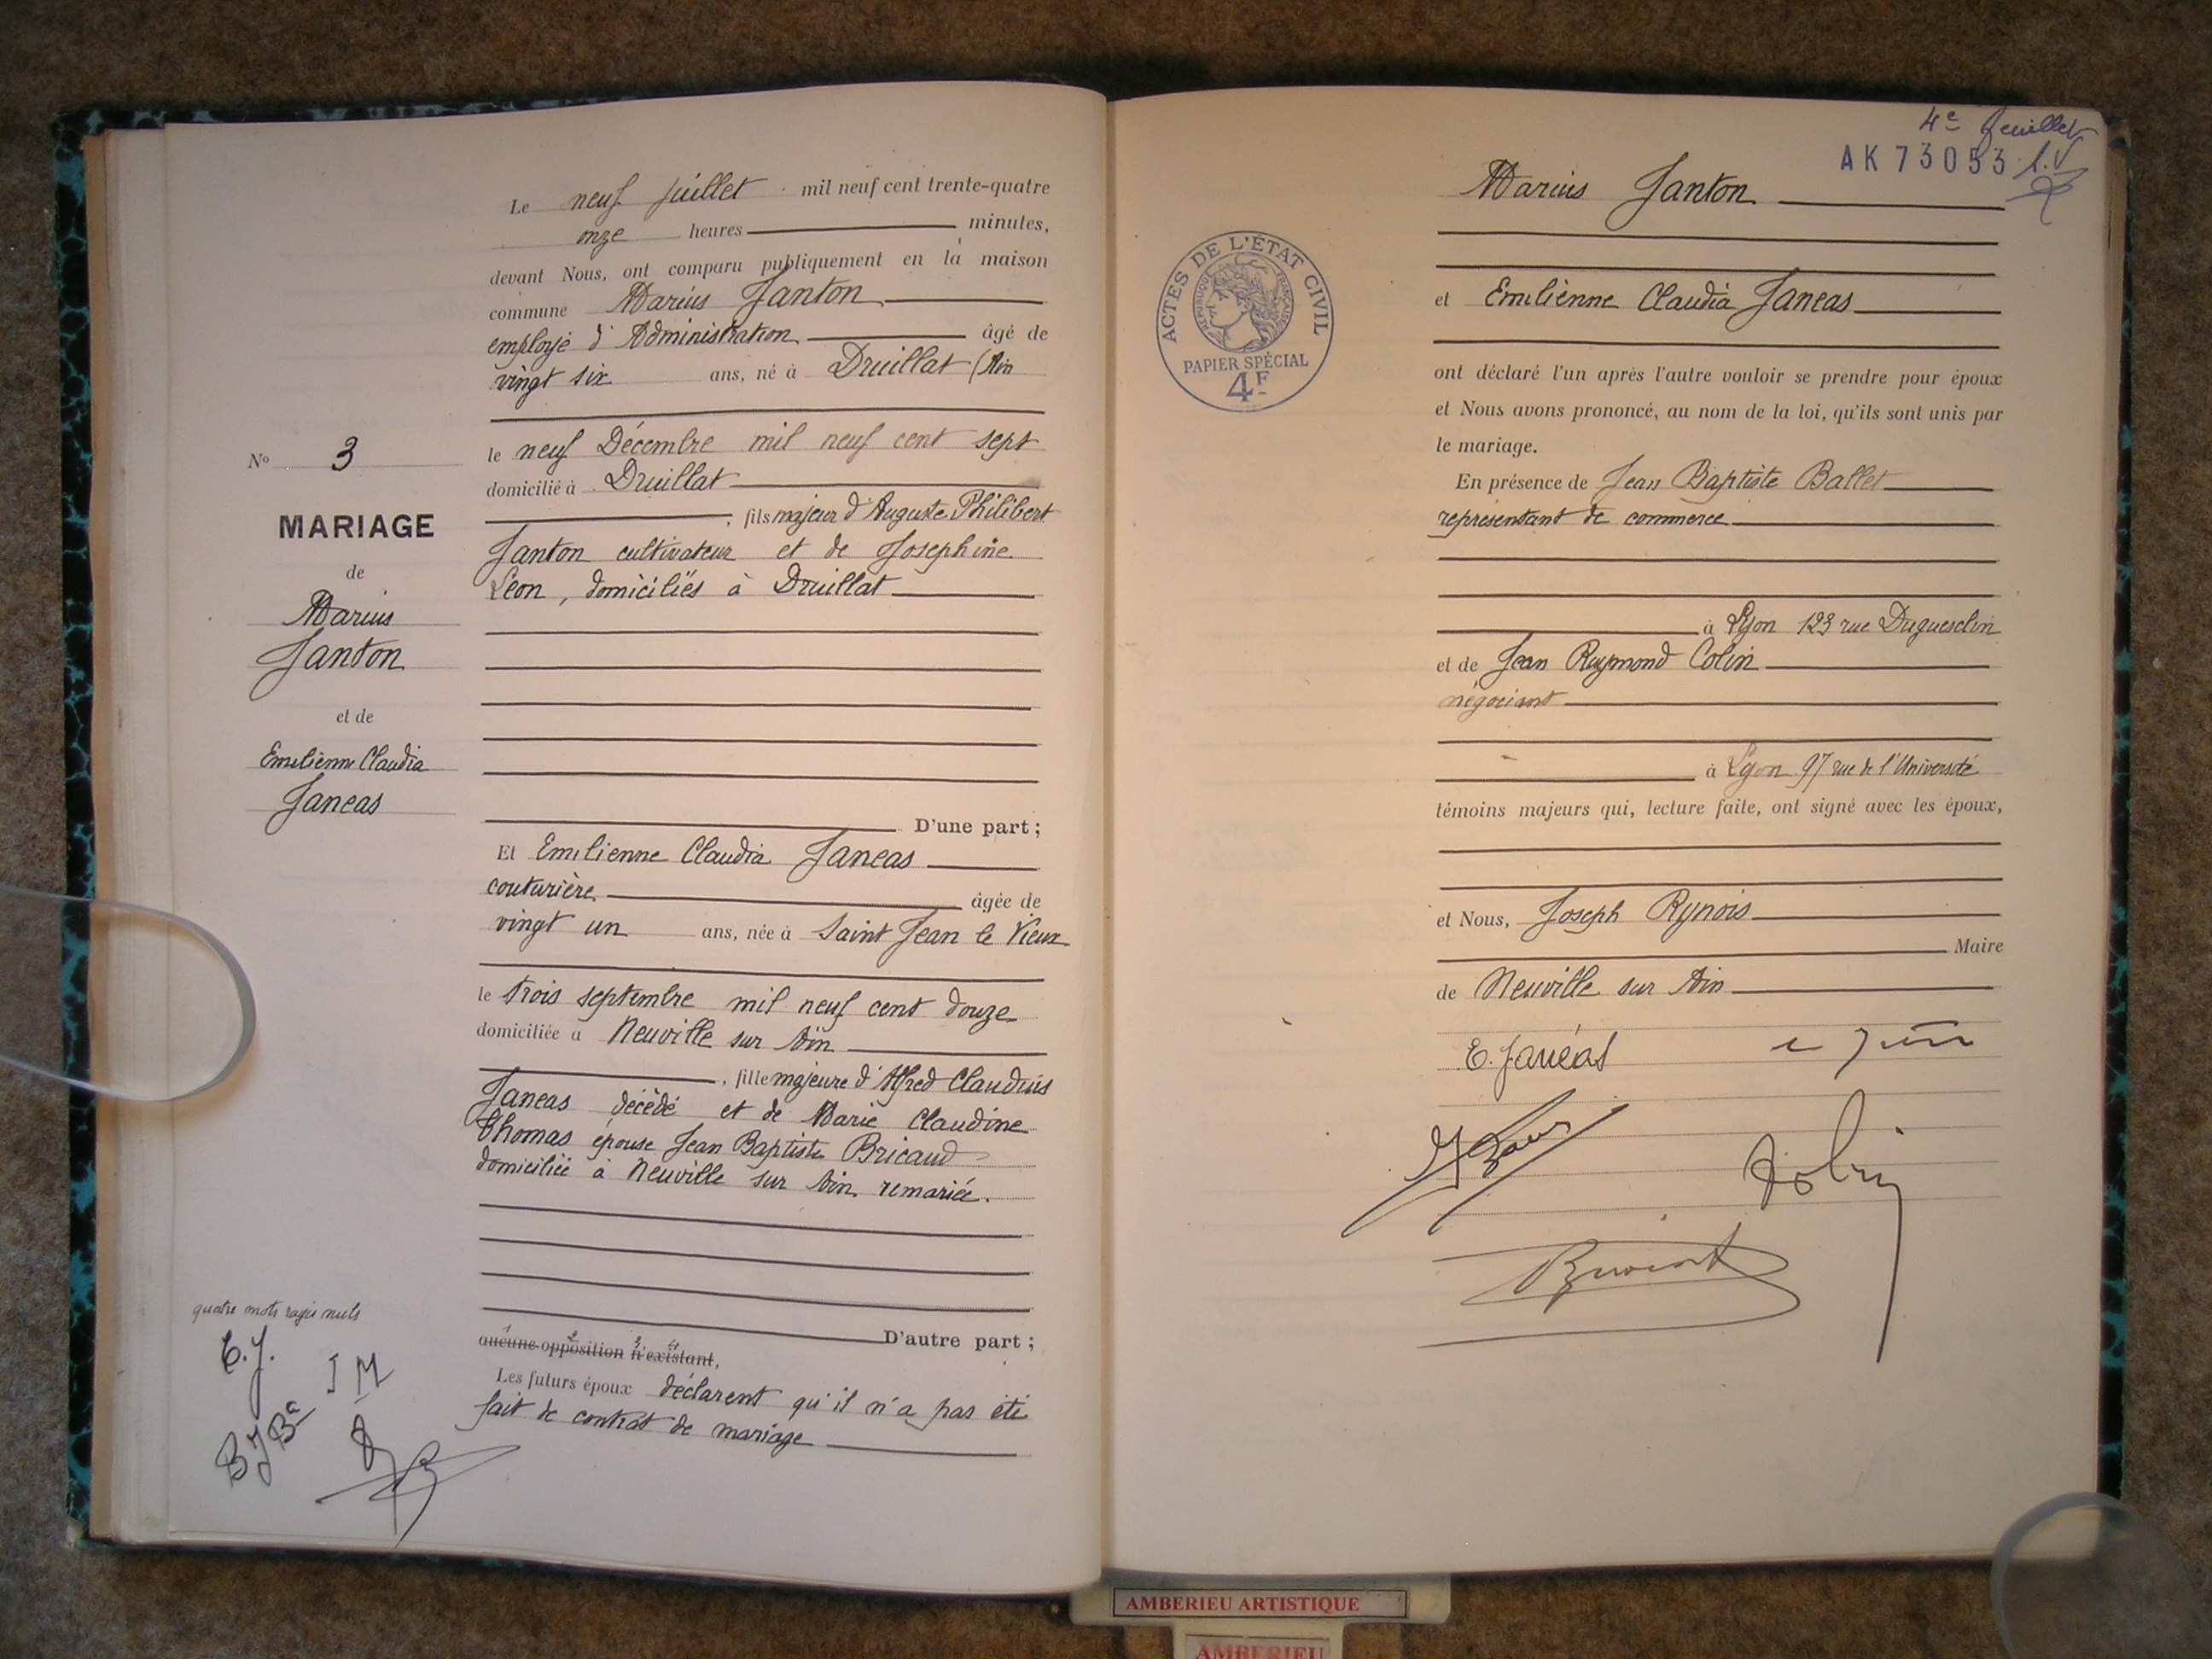 Le neuf Juillet mil neuf cent trente-quatre
onze heures minutes,
devant Nous, ont comparu publiquement en la maison
commune Marius Janton
employé d'Administration âgé de
vingt six ans, né à Druillat (Ain
le neuf Décembre mil neuf cent sept
domicilié à Druillat
, fils majeur d'Auguste Philibert
Janton cultivateur et de Josephine
Léon, domiciliés à Druillat
D'une part ;
No 3
MARIAGE
de
Marius
Janton
et de
Emilienne Claudia
Janeas
Et Emilienne Claudia Janeas
couturière âgée de
vingt un ans, née à Saint Jean le Vieux
le trois septembre mil neuf cent douze
domiciliée à Neuville sur Ain
, fille majeure d'Alfred Claudius
Janeas décédé et de Marie Claudine
Thomas épouse Jean Baptiste Bricaud
domiciliée à Neuville sur Ain remariée.
D'autre part ;
aucune opposition n'existant,
Les futurs époux déclarent qu'il n'a pas été
fait de contrat de mariage
quatre mots rayés nuls
E.J.
J M
4e feuillet
AK 73053
ACTES DE L'ÉTAT CIVIL
RÉPUBLIQUE FRANÇAISE
PAPIER SPÉCIAL
4F
Marius Janton
et Emilienne Claudia Janeas
ont déclaré l'un après l'autre vouloir se prendre pour époux
et Nous avons prononcé, au nom de la loi, qu'ils sont unis par
le mariage.
En présence de Jean Baptiste Ballet
représentant de commerce
à Lyon 123 rue Duguesclin
et de Jean Raymond Colin
négociant
à Lyon 97 rue de l'Université
témoins majeurs qui, lecture faite, ont signé avec les époux,
et Nous, Joseph Rynois
Maire
de Neuville sur Ain
E. Janéas
AMBERIEU ARTISTIQUE
AMBERIEU